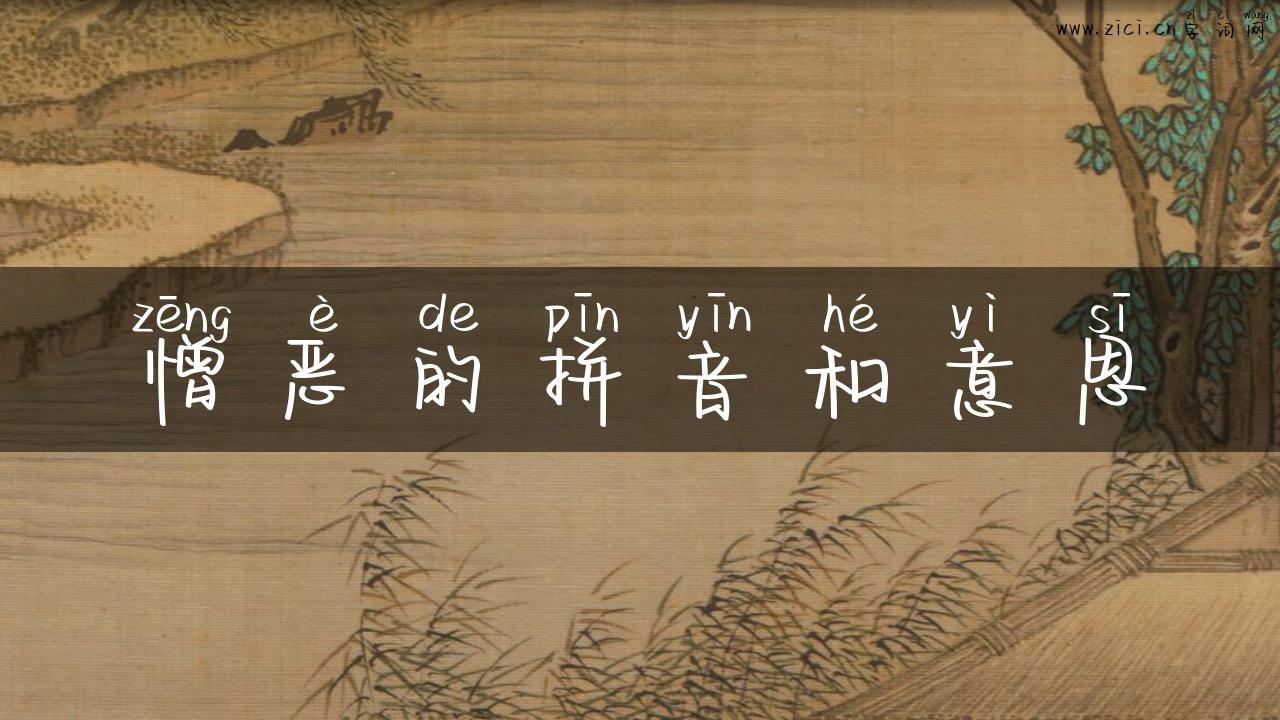 zì cí wǎng
www.zici.cn字词网
zēng è de pīn yīn hé yì sī
憎恶的拼音和意思